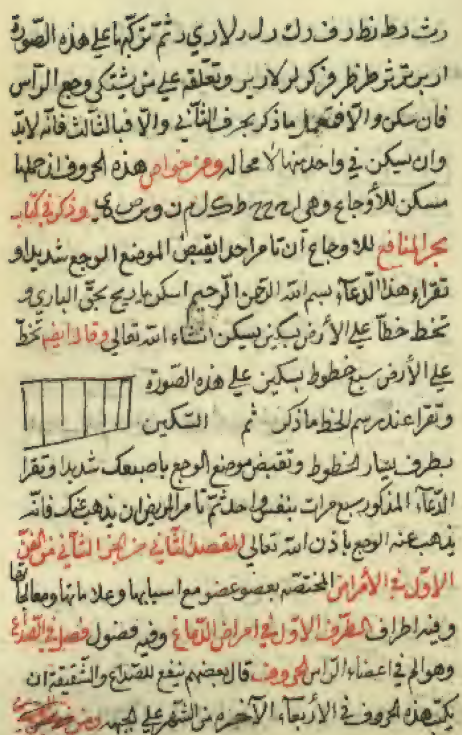 رث رط نظ رف رك رل رلا ري ر ثم تركبها على هذه الصورة
وتعلقه على من يشتكي وجع الراس
فان سكن والا فتعمل ما ذكر بحرف الثاني والا فبالثالث فانه لابد
وان يسكن في واحد منها لا محاله ومن خواص هذه الحروف ان حملها
مسكن للاوجاع وهي ا ح ط ك ل م ن و س ص ي وذكر في كتاب
بحر المنافع للاوجاع ان تامر احدا يقبض الموضع الوجع شديدا و
تقراء هذا الدعاء بسم الله الرحمن الرحيم اسكن يا ريح بحق الباري و
تخط خطا على الارض بسكين يسكن انشاء الله تعالى وقال ايضا تخط
على الارض سبع خطوط بسكين على هذه الصورة
وتقرا عند رسم الخط ما ذكر ثم السكين
بطرف يسار الخطوط وتقبض موضع الوجع باصبعك شديدا وتقرا
الدعاء المذكور سبع مرات بنفس واحد ثم تامر المريض ان يذهب عنك فانه
يذهب عنه الوجع باذن الله تعالى المقصد الثاني من الجزء الثاني من الفن
الاول في الامراض المختصه بعضو عضو مع اسبابها وعلاماتها ومعالجاتها
وفيه اطراف الطرف الاول في امراض الدماغ وفيه فصول فصل في الصداع
وهو الم في اعضاء الراس الحروف قال بعضهم ينفع للصداع والشقيقة ان
يكتب هذه الحروف في الاربعاء الآخره من الشهر على الجبهه